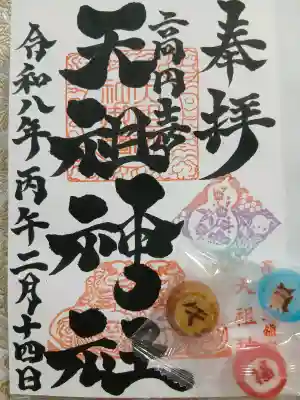 奉拝
高円寺
天祖神社
令和八年丙午二月十四日